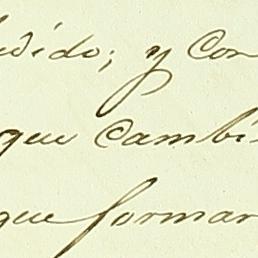 y Con
que Cambi
que formar